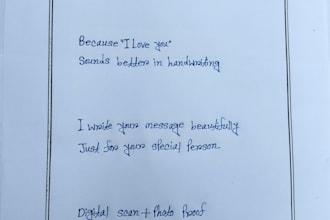 Because "I love you"
Sounds better in handwriting
I write your message beautifully
Just for your special person
Digital scan + Photo Proof